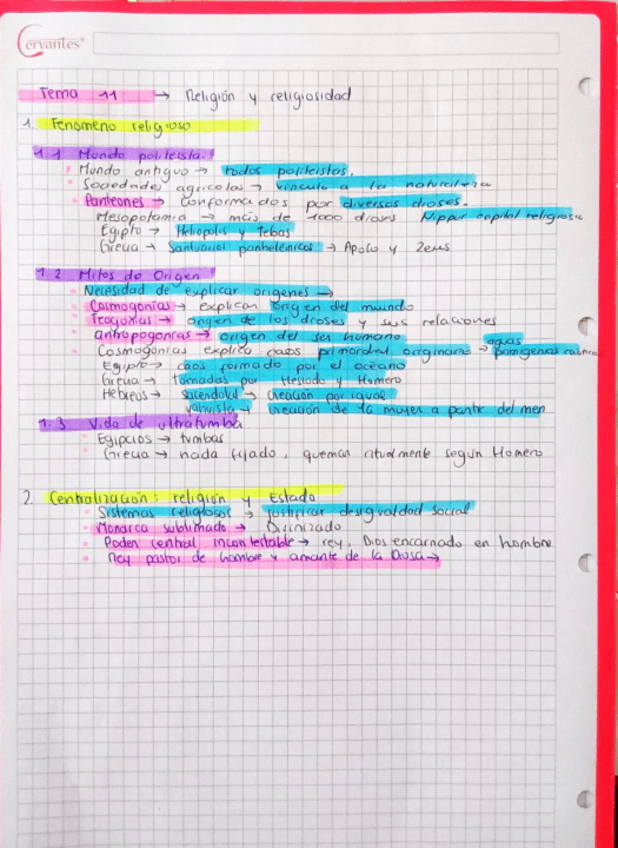 Cervantes
Tema 11 → Religión y religiosidad
1. Fenómeno religioso
1.1 Mundo politeísta.
Mundo antiguo → todos politeístas.
Sociedades agrícolas → vínculo a la naturaleza
Panteones → conformados por diversos dioses.
Mesopotamia → más de 1000 dioses Nippur capital religiosa
Egipto → Heliopolis y Tebas
Grecia → Santuarios panhelénicos → Apolo y Zeus
1.2 Mitos de Origen
Necesidad de explicar orígenes →
Cosmogonías → explican origen del mundo
Teogonías → origen de los dioses y sus relaciones
Antropogonías → origen del ser humano
Cosmogonías explica caos primordial originario → aguas primigenias
Egipto → caos formado por el océano
Grecia → tomadas por Hesíodo y Homero
Hebreos → sacerdotal → creación por igual
yahvista → creación de la mujer a partir del men
1.3 Vida de ultratumba
Egipcios → tumbas
Grecia → nada fijado, queman ritualmente según Homero
2. Centralización: religión y Estado
Sistemas religiosos → justificar desigualdad social
Monarca sublimado → Divinizado
Poder central incontestable → rey, Dios encarnado en hombre
Rey pastor de hombre y amante de la Diosa →